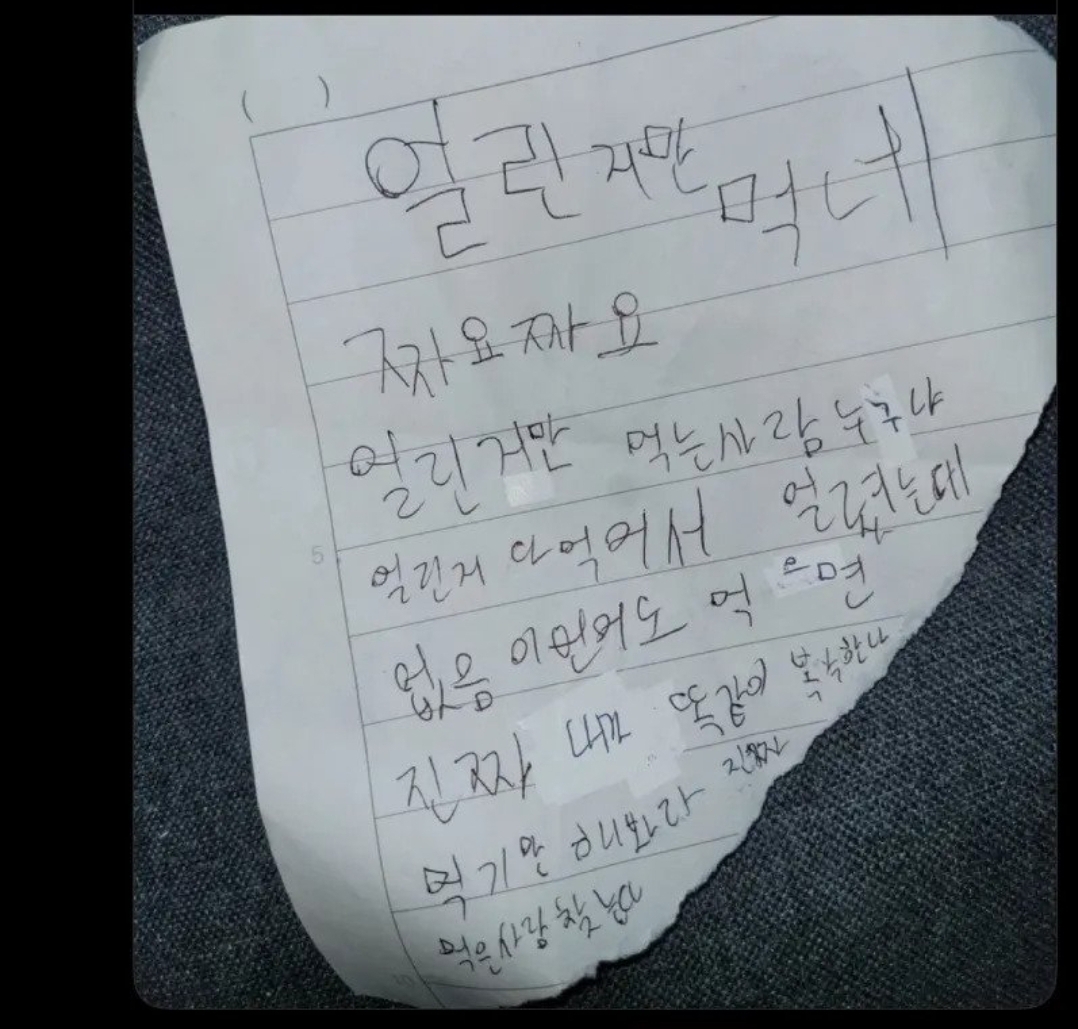 ( )
얼린 거만 먹네
짜요짜요
얼린 거만 먹는 사람 누구냐
얼린거 다 먹어서 얼렸는데
없음 이번에도 먹으면
진짜 내가
먹기만 해봐라 진짜
먹은사람 찾는다
5